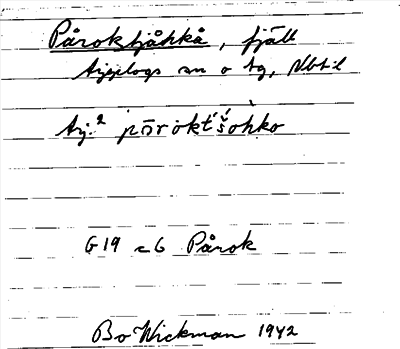 Påroktjåhkå, fjäll
Arjeplogs sn o tg, Nbt-l
Arj.² pōrokt́š́ohko
G 19 c6 Pårok
Bo Wickman 1942